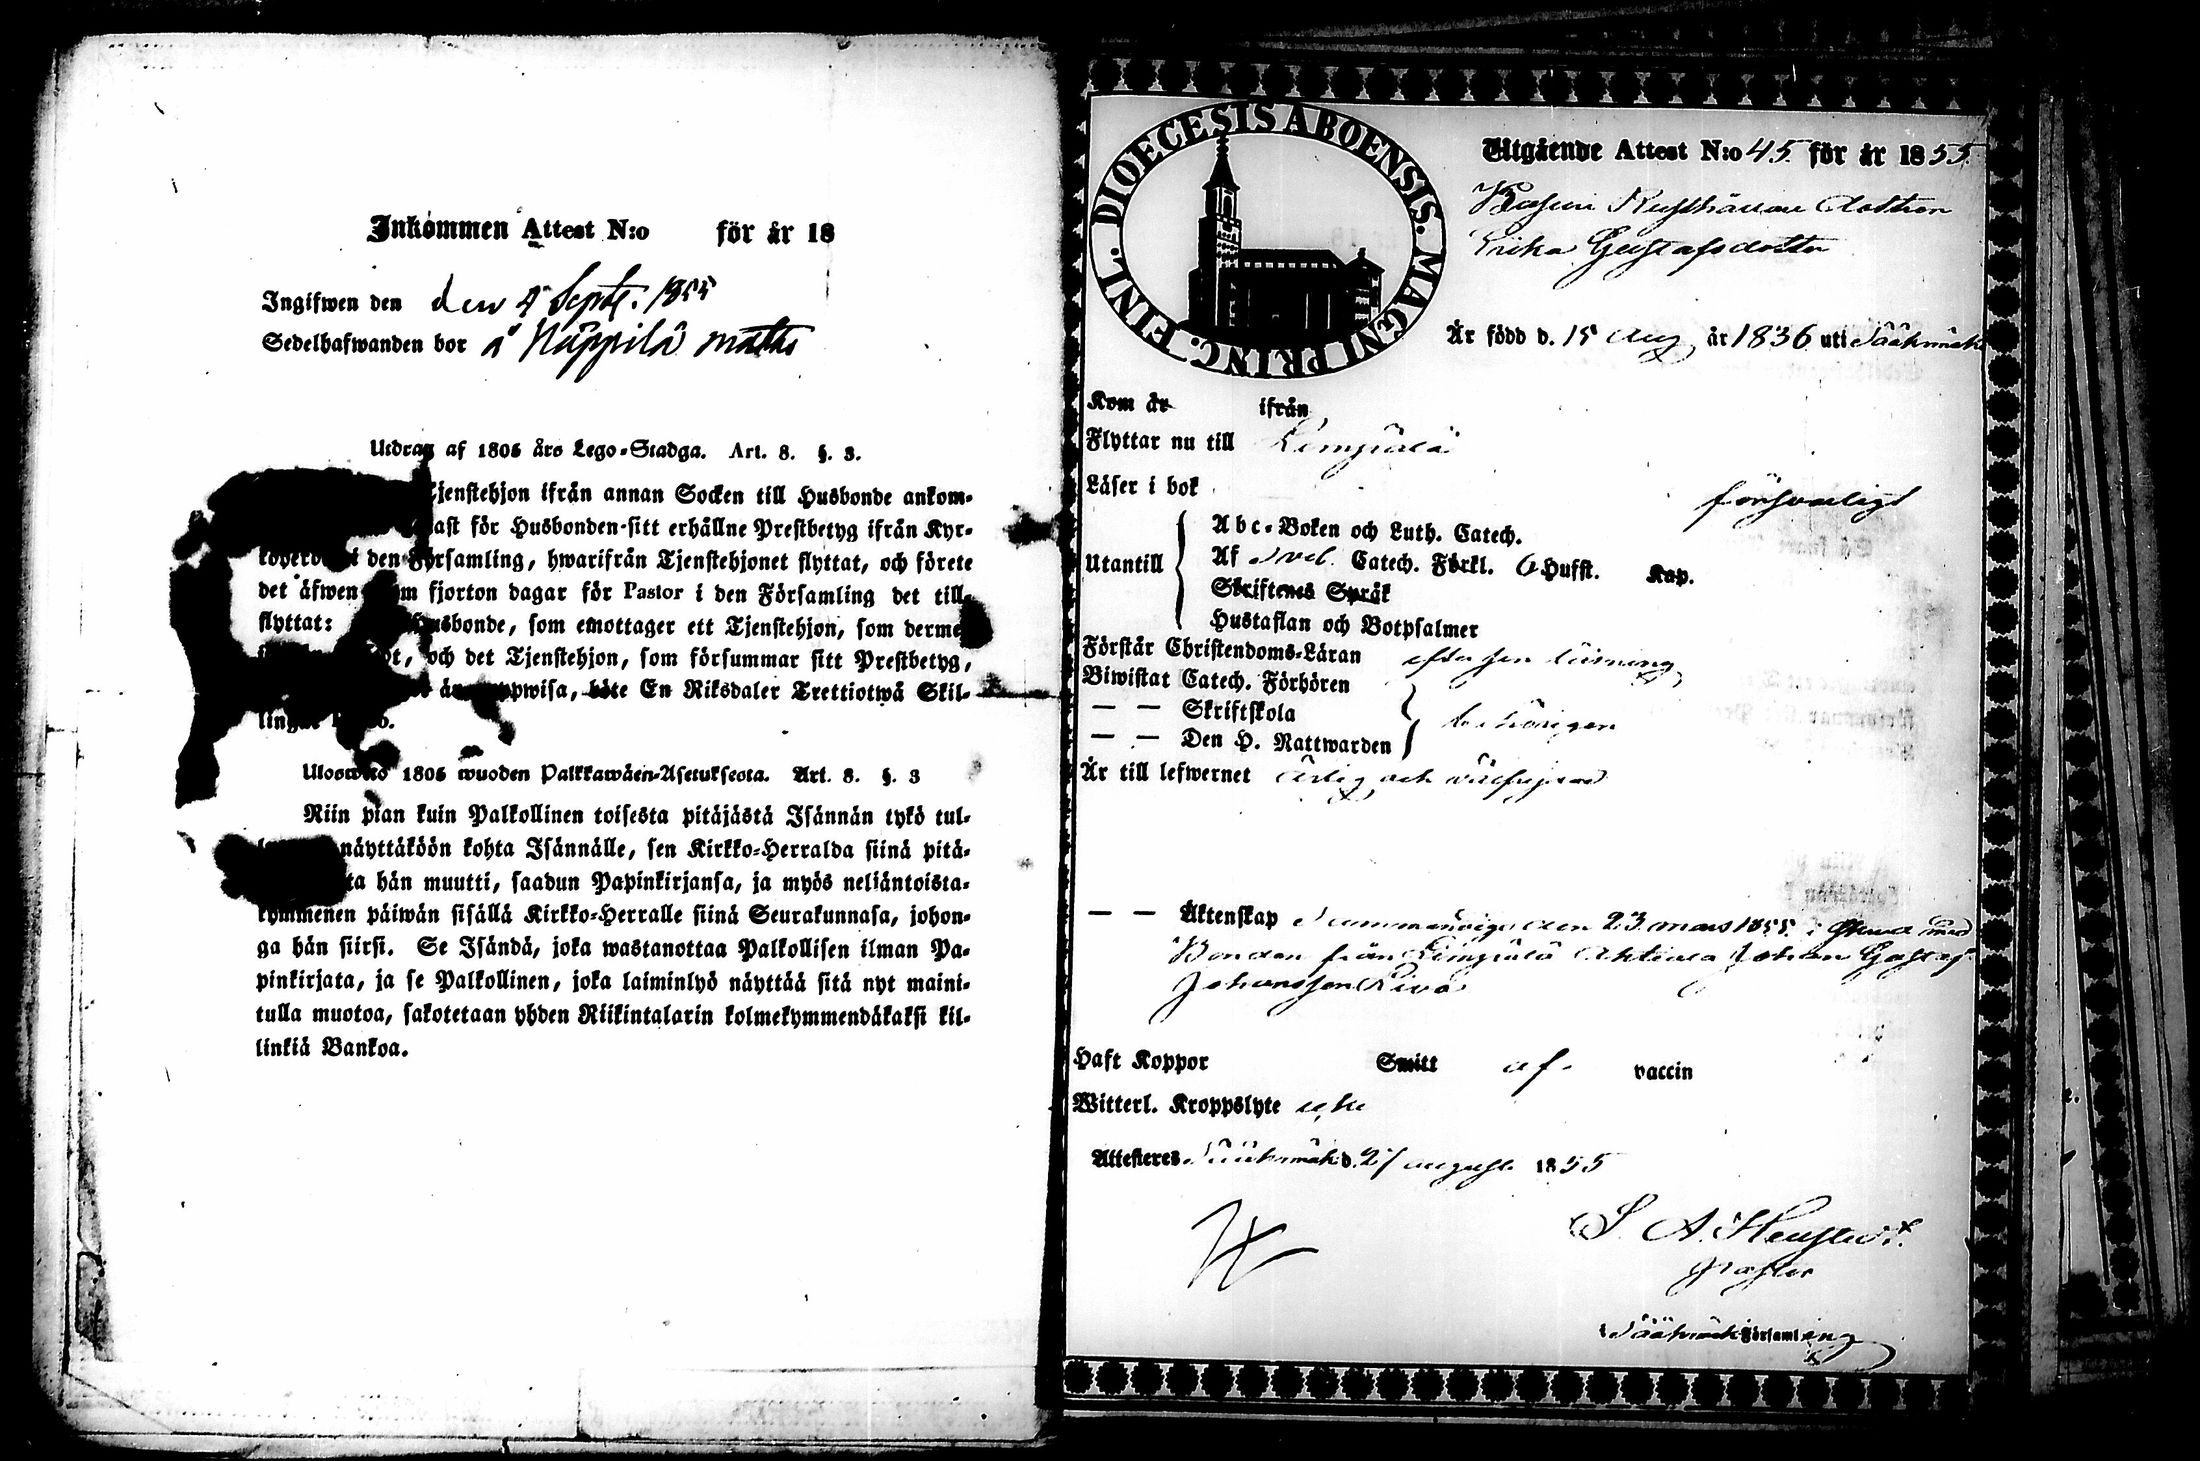 Inkommen Attest N:o för år 18
Ingifwen den den 4 Septe. 1855
Sedelhafwanden bor å Näppilä
Utdrag af 1805 års Lego-Stadga. Art. 8. §. 3.
Tjenstehjon ifrån annan Socken till Husbonde ankom-
för Husbonden sitt erhållne Prestbetyg ifrån Kyr-
i den Församling, hwarifrån Tjenstehjonet flyttat, och förete
det äfwen fjorton dagar för Pastor i den Församling det till-
flyttat: Husbonde, som emottager ett Tjenstehjon, som
och det Tjenstehjon, som försummar sitt Prestbetyg,
uppwisa, böte En Riksdaler Trettiotwå Skil-
Uloswето 1805 wuoden Palkkawäen-Asetuksesta. Art. 8. §. 3
Niin pian kuin Palkollinen toisesta pitäjästä Isännän tykö tul-
näyttäköön kohta Isännälle, sen Kirkko-Herralda siinä pitä-
ta hän muutti, saadun Papinkirjansa, ja myös neljäntoista-
kymmenen päiwän sisällä Kirkko-Herralle siinä Seurakunnasa, johon-
ga hän siirsi. Se Isändä, joka wastanottaa Palkollisen ilman Pa-
pinkirjata, ja se Palkollinen, joka laiminlyö näyttää sitä nyt maini-
tulla muotoa, sakotetaan yhden Riikintalarin kolmekymmendäkaksi kil-
linkiä Bankoa.
DIOECESIS ABOENSIS. MAGNI PRINC. FINL.
Utgående Attest N:o 45 för år 1855.
Erika Gustafsdotter
Är född d. 15 Aug år 1836 uti Sääksmäki
Kom år ifrån
Flyttar nu till Lempäälä
Läser i bok försvarligt
Utantill
Abc-Boken och Luth. Catech.
Af Sveb. Catech. Förkl. 6 Hufst. Kap.
Skriftenes Språk
Hustaflan och Botpsalmer
Förstår Christendoms-Läran efter sin läsning
Biwistat Catech. Förhören
— — Skriftskola
— — Den H. Nattwarden behörigen
Är till lefwernet ärlig och välfrejdad
— — Äktenskap den 23 mars 1855 med
Bonden från Lempäälä Johan Gustaf
Johansson
Haft Koppor Smitt af vaccin
Witterl. Kroppslyte icke
Attesteras Sääksmäki d. 27 augusti 1855
pastor
Sääksmäki Församling